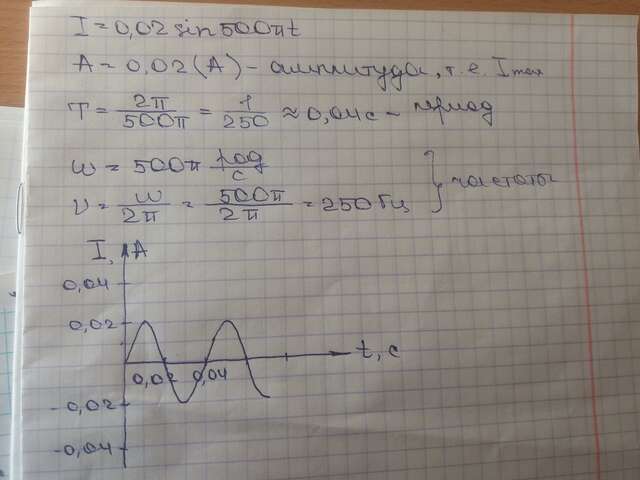 I = 0,02 sin 500πt
A = 0,02 (A) – амплитуда, т.е. Imax
T = 2π/500π = 1/250 ≈ 0,04с – период
ω = 500π рад/с
ν = ω/2π = 500π/2π = 250 Гц } частоты
I, A
0,04
0,02
0,02 0,04 t, c
-0,02
-0,04